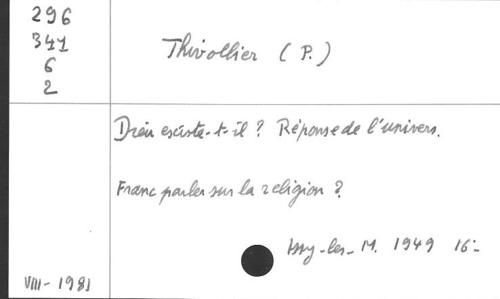 296
341
6
2
Thivollier (P.)
Dieu existe-t-il ? Réponse de l'univers.
Franc parler sur la religion ?
Issy-les-M. 1949 16=
VIII-1981